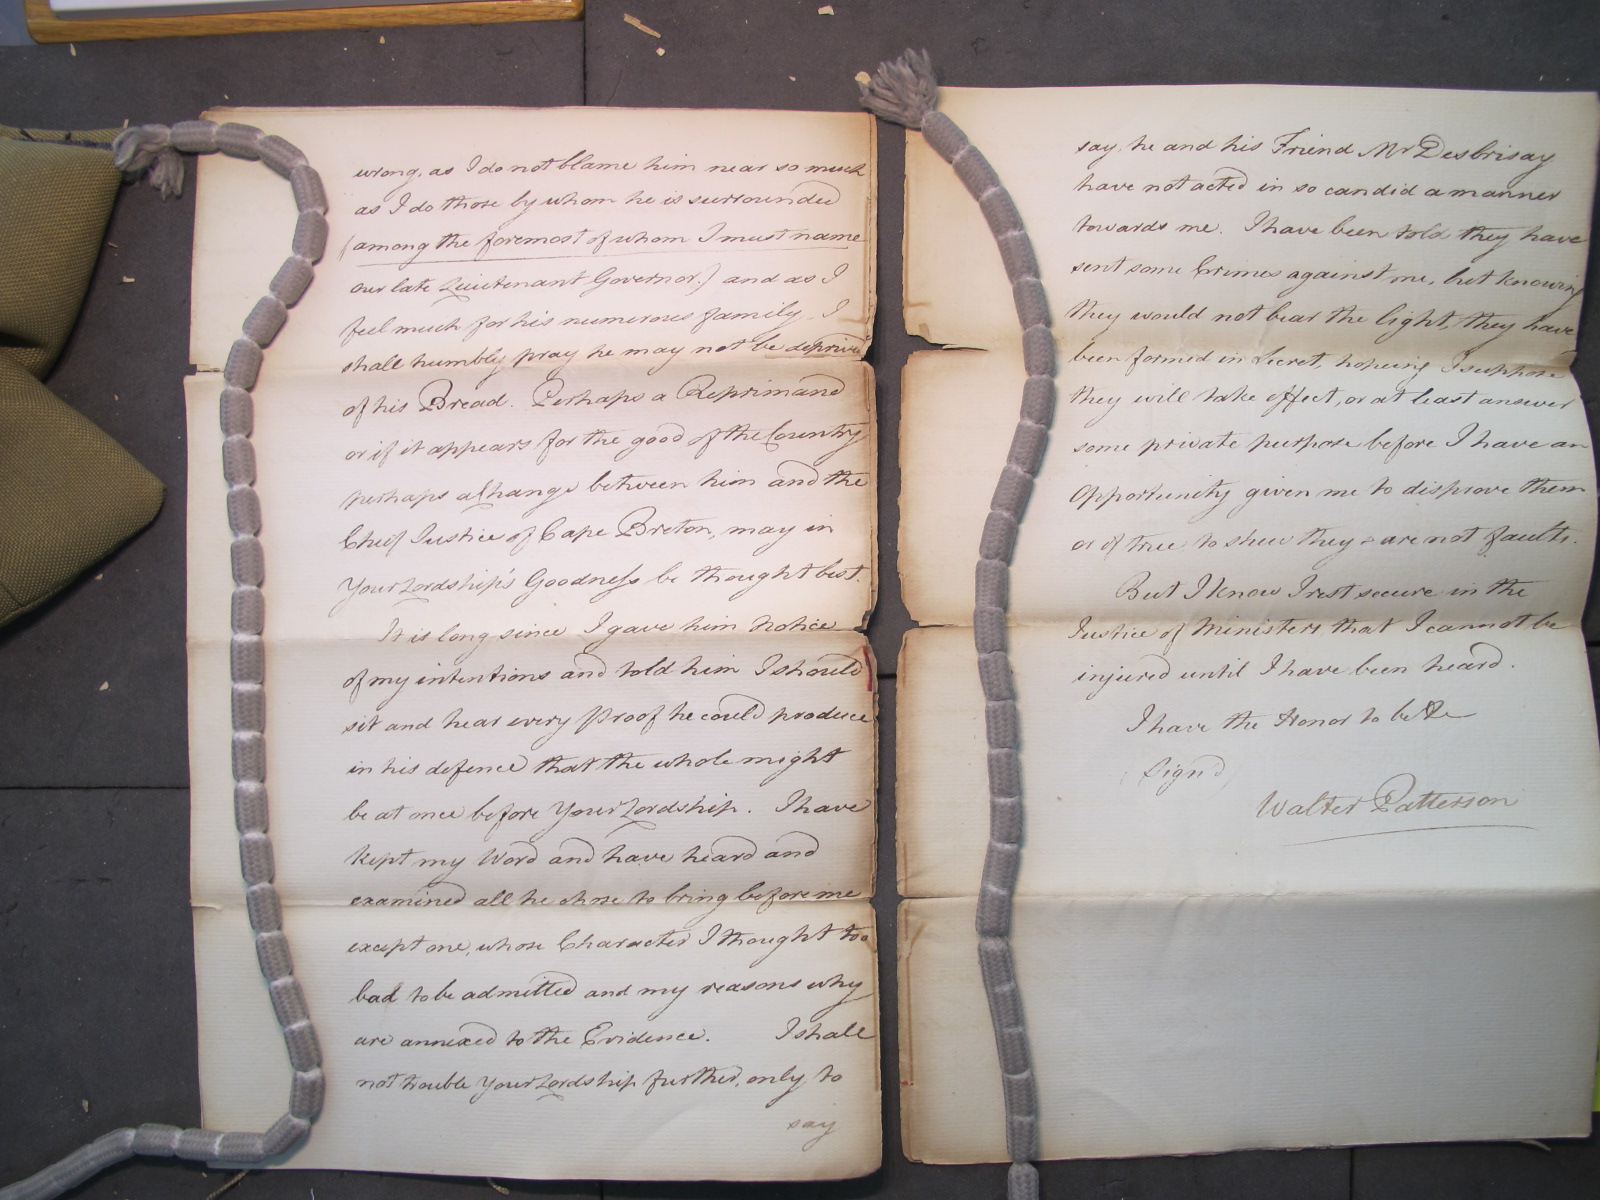 wrong, as I do not blame him near so much
as I do those by whom he is surrounded
(among the foremost of whom I must name
our late Lieutenant Governor.) and as I
feel much for his numerous family, I
shall humbly pray he may not be deprived
of his Bread. Perhaps a Reprimand
or if it appears for the good of the Country
perhaps a Change between him and the
Chief Justice of Cape Breton, may in
Your Lordship's Goodness be thought best.
It is long since I gave him Notice
of my intentions and told him I should
sit and hear every Proof he could produce
in his defence that the whole might
be at once before Your Lordship. I have
kept my Word and have heard and
examined all he chose to bring before me
except one, whose Character I thought too
bad to be admitted and my reasons why
are annexed to the Evidence. I shall
not trouble Your Lordship further, only to
say
say, he and his Friend Mr Desbrisay
have not acted in so candid a manner
towards me. I have been told they have
sent some Crimes against me, but knowing
they would not bear the light, they have
been formed in Secret, hopeing I suppose
they will take effect, or at least answer
some private purpose before I have an
Opportunity given me to disprove them
or if true, to shew they are not faults.
But I know I rest secure in the
Justice of Ministers that I cannot be
injured until I have been heard.
I have the Honor to be &c
(Sign'd)
Walter Patterson